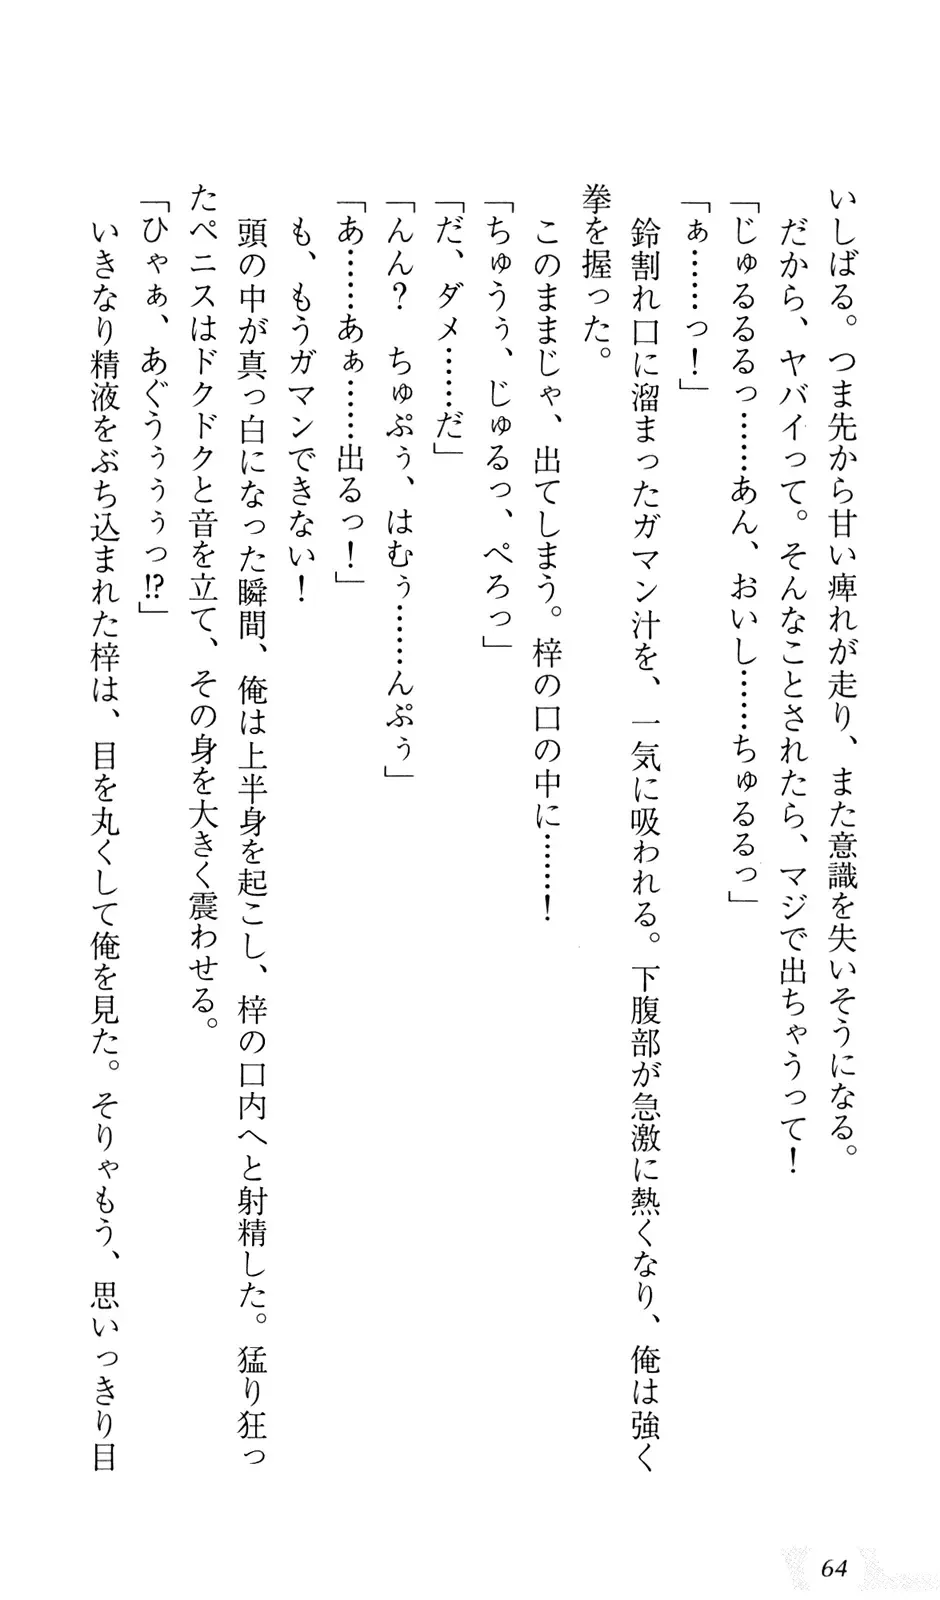 いしばる。つま先から甘い痺れが走り、また意識を失いそうになる。
だから、ヤバイって。そんなことされたら、マジで出ちゃうって！
「じゅるるるっ……あん、おいし……ちゅるるっ」
「ぁ……っ！」
鈴割れ口に溜まったガマン汁を、一気に吸われる。下腹部が急激に熱くなり、俺は強く
拳を握った。
このままじゃ、出てしまう。梓の口の中に……！
「ちゅうぅ、じゅるっ、ぺろっ」
「だ、ダメ……だ」
「んん？　ちゅぷぅ、はむぅ……んぷぅ」
「あ……あぁ……出るっ！」
も、もうガマンできない！
頭の中が真っ白になった瞬間、俺は上半身を起こし、梓の口内へと射精した。猛り狂っ
たペニスはドクドクと音を立て、その身を大きく震わせる。
「ひゃぁ、あぐうぅぅぅっ!?」
いきなり精液をぶち込まれた梓は、目を丸くして俺を見た。そりゃもう、思いっきり目
64